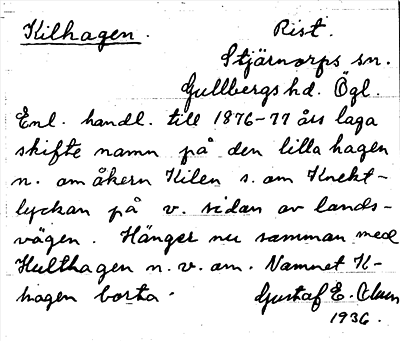 Kilhagen. Rist.
Stjärnorps sn.
Gullbergs hd. Ögl.
Enl. handl. till 1876-77 års laga
skifte namn på den lilla hagen
n. om åkern Kilen s. om Knekt-
lyckan på v. sidan av lands-
vägen. Hänger nu samman med
Hulthagen n.v. om. Namnet K-
hagen borta.
Gustaf E. Olsson
1936.